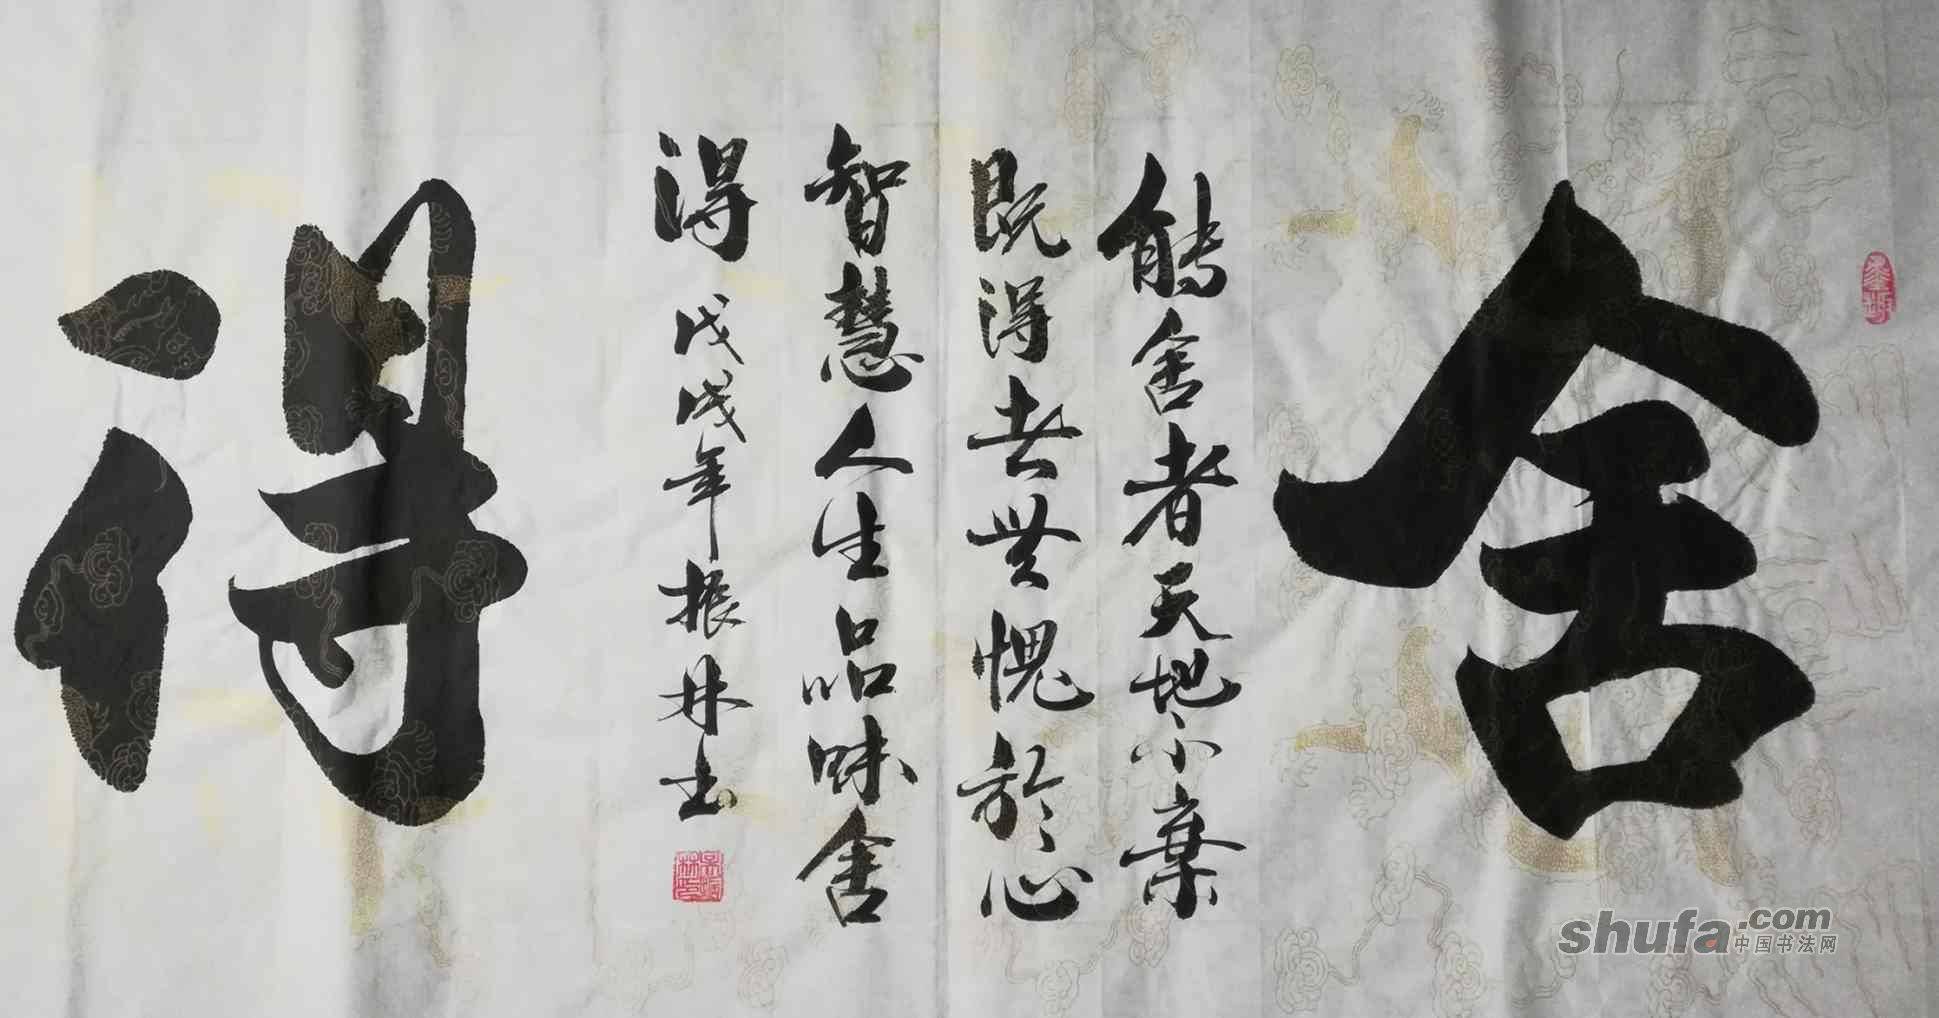 舍
能舍者天地不棄
既得者無愧於心
智慧人生品味舍
得 戊戌年振林书
得
shufa.com
中国书法网